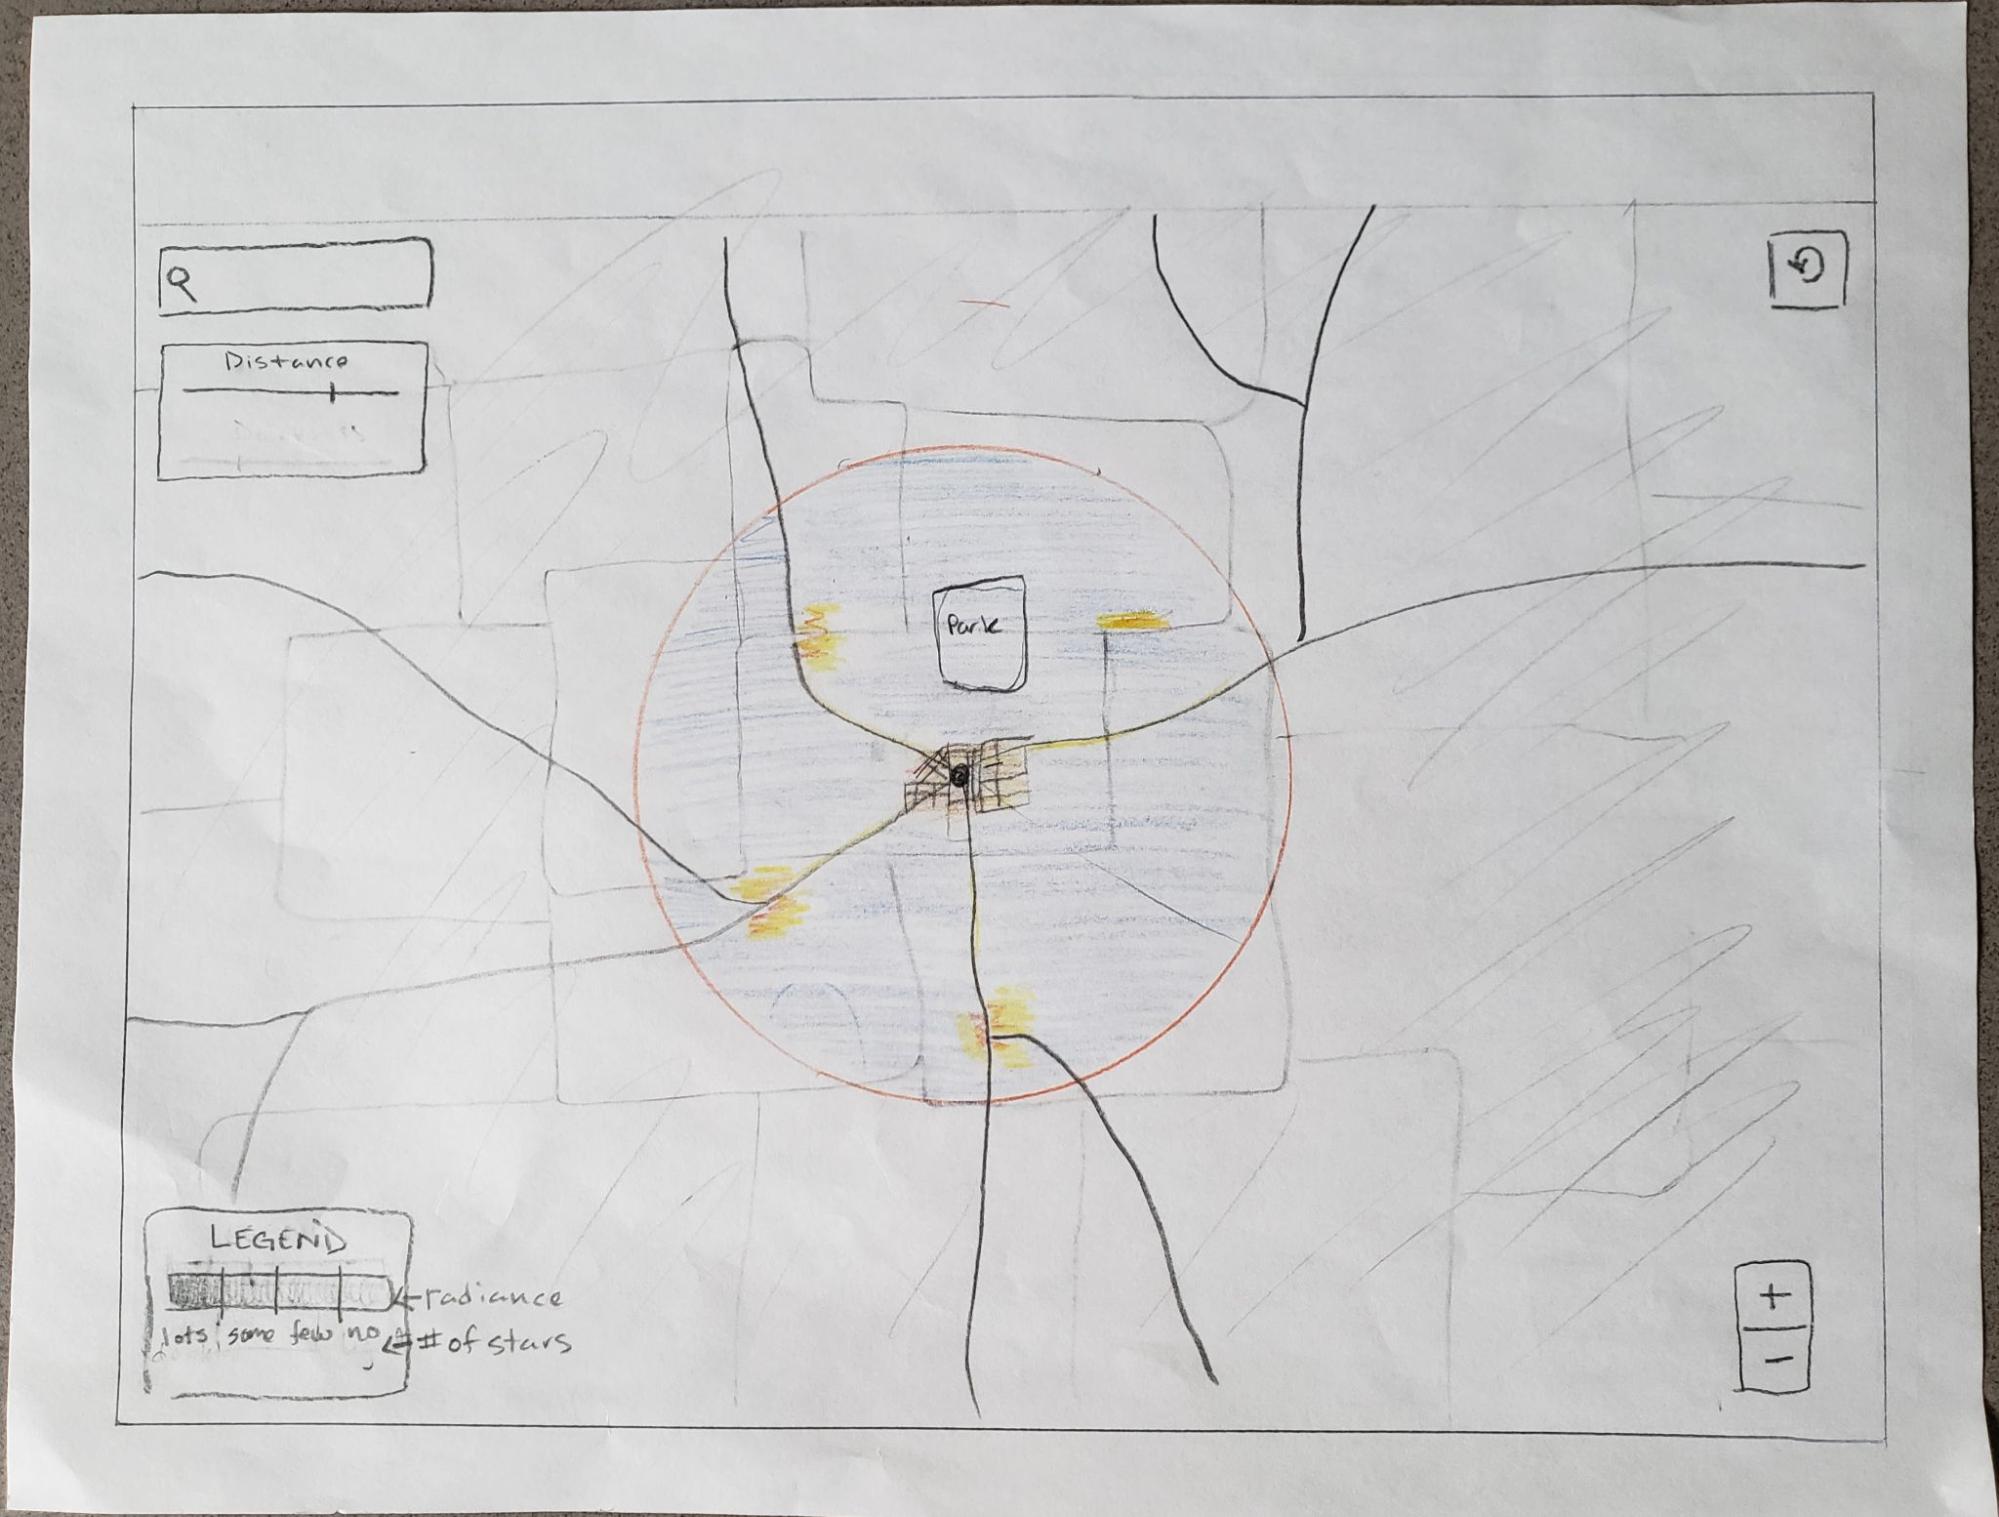 Distance
Park
LEGEND
radiance
lots some few no
# of stars
+
-